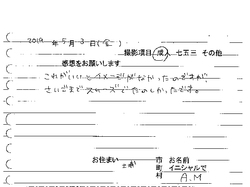 2019 年 5月 3日(金)
撮影項目 成人 七五三 その他
感想をお願いします
これがいい!とイメージがなかったのですが、
さいごまでスムーズでたのしかったです。
お住まい 市 お名前
町 イニシャルで
村 A.M